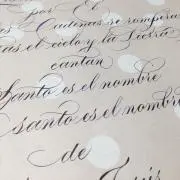 por El
Cadenas se romperá
el cielo y la Tierra
cantan
Santo es el nombre
santo es el nombre
de
Jesús